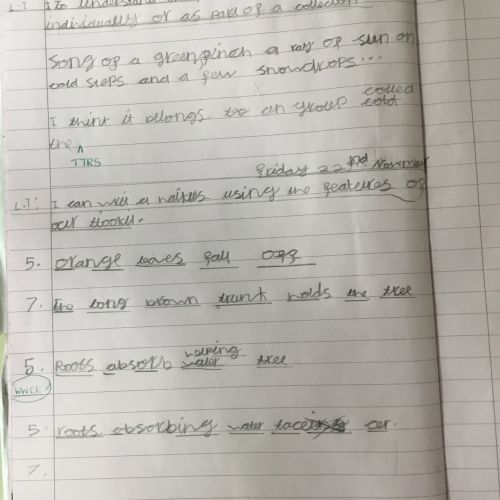 L:I to understand
individually or as part of a collection
Song of a greenfinch a ray of sun on
cold steps and a few snowdrops...
I think it belongs too an group called cold
the
TTRS
Friday 22nd November
L:I: I can writ a haikus using the features of
our
5. Orange leaves fall off
7. The long brown trunk holds the tree
5. Roots absorb water tree
WWCE
5 roots absorbing water
7.